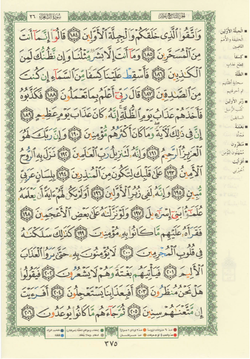 وَٱتَّقُوا۟ ٱلَّذِى خَلَقَكُمْ وَٱلْجِبِلَّةَ ٱلْأَوَّلِينَ ١٨٤ قَالُوٓا۟ إِنَّمَآ أَنتَ
مِنَ ٱلْمُسَحَّرِينَ ١٨٥ وَمَآ أَنتَ إِلَّا بَشَرٌ مِّثْلُنَا وَإِن نَّظُنُّكَ لَمِنَ
ٱلْكَـٰذِبِينَ ١٨٦ فَأَسْقِطْ عَلَيْنَا كِسَفًا مِّنَ ٱلسَّمَآءِ إِن كُنتَ
مِنَ ٱلصَّـٰدِقِينَ ١٨٧ قَالَ رَبِّىٓ أَعْلَمُ بِمَا تَعْمَلُونَ ١٨٨ فَكَذَّبُوهُ
فَأَخَذَهُمْ عَذَابُ يَوْمِ ٱلظُّلَّةِ إِنَّهُۥ كَانَ عَذَابَ يَوْمٍ عَظِيمٍ ١٨٩ إِنَّ
فِى ذَٰلِكَ لَـَٔايَةً وَمَا كَانَ أَكْثَرُهُم مُّؤْمِنِينَ ١٩٠ وَإِنَّ رَبَّكَ لَهُوَ
ٱلْعَزِيزُ ٱلرَّحِيمُ ١٩١ وَإِنَّهُۥ لَتَنزِيلُ رَبِّ ٱلْعَـٰلَمِينَ ١٩٢ نَزَلَ بِهِ ٱلرُّوحُ
ٱلْأَمِينُ ١٩٣ عَلَىٰ قَلْبِكَ لِتَكُونَ مِنَ ٱلْمُنذِرِينَ ١٩٤ بِلِسَانٍ عَرَبِىٍّ
مُّبِينٍ ١٩٥ وَإِنَّهُۥ لَفِى زُبُرِ ٱلْأَوَّلِينَ ١٩٦ أَوَلَمْ يَكُن لَّهُمْ ءَايَةً أَن يَعْلَمَهُۥ
عُلَمَـٰٓؤُا۟ بَنِىٓ إِسْرَٰٓءِيلَ ١٩٧ وَلَوْ نَزَّلْنَـٰهُ عَلَىٰ بَعْضِ ٱلْأَعْجَمِينَ ١٩٨
فَقَرَأَهُۥ عَلَيْهِم مَّا كَانُوا۟ بِهِۦ مُؤْمِنِينَ ١٩٩ كَذَٰلِكَ سَلَكْنَـٰهُ
فِى قُلُوبِ ٱلْمُجْرِمِينَ ٢٠٠ لَا يُؤْمِنُونَ بِهِۦ حَتَّىٰ يَرَوُا۟ ٱلْعَذَابَ
ٱلْأَلِيمَ ٢٠١ فَيَأْتِيَهُم بَغْتَةً وَهُمْ لَا يَشْعُرُونَ ٢٠٢ فَيَقُولُوا۟
هَلْ نَحْنُ مُنظَرُونَ ٢٠٣ أَفَبِعَذَابِنَا يَسْتَعْجِلُونَ ٢٠٤ أَفَرَءَيْتَ
إِن مَّتَّعْنَـٰهُمْ سِنِينَ ٢٠٥ ثُمَّ جَآءَهُم مَّا كَانُوا۟ يُوعَدُونَ ٢٠٦
٣٧٥